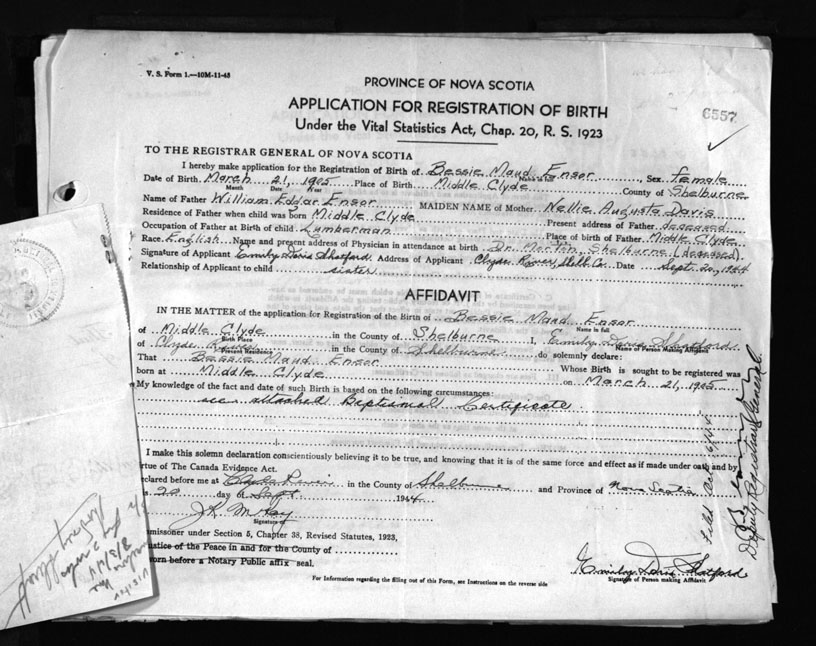 V. S. Form 1.—10M-11-43
PROVINCE OF NOVA SCOTIA
APPLICATION FOR REGISTRATION OF BIRTH
6557
Under the Vital Statistics Act, Chap. 20, R. S. 1923
TO THE REGISTRAR GENERAL OF NOVA SCOTIA
I hereby make application for the Registration of Birth of Bessie Maud Ensor, Sex Female
Name in full
Date of Birth March 21, 1905 Place of Birth Middle Clyde County of Shelburne
Month Date Year
Name of Father William Edgar Ensor MAIDEN NAME of Mother Nellie Augusta Davis
Residence of Father when child was born Middle Clyde Present address of Father deseased
Occupation of Father at Birth of child Lumberman Place of birth of Father Middle Clyde
Race English Name and present address of Physician in attendance at birth Dr. Morton, Shelburne (deseased)
Signature of Applicant Emily Doris Shatford Address of Applicant Clyde River, Shelb. Co. Date Sept. 20, 1944
Relationship of Applicant to child sister
AFFIDAVIT
IN THE MATTER of the application for Registration of the Birth of Bessie Maud Ensor
Name in full
of Middle Clyde in the County of Shelburne I, Emily Doris Shatford
Birth Place Name of Person Making Affidavit
of Clyde River in the County of Shelburne do solemnly declare:
Present Residence
That Bessie Maud Ensor Whose Birth is sought to be registered was
born at Middle Clyde on March 21, 1905
My knowledge of the fact and date of such Birth is based on the following circumstances:
see attached Baptismal Certificate
I make this solemn declaration conscientiously believing it to be true, and knowing that it is of the same force and effect as if made under oath and by
rtue of The Canada Evidence Act.
clared before me at Clyde River in the County of Shelburne and Province of Nova Scotia
20 day of Sept 1944
Signature of
mmissioner under Section 5, Chapter 38, Revised Statutes, 1923,
ustice of the Peace in and for the County of
worn before a Notary Public affix seal.
Emily Doris Shatford
Signature of Person making Affidavit
For Information regarding the filling out of this Form, see Instructions on the reverse side
Filed Oct 16/44
Deputy Registrar General